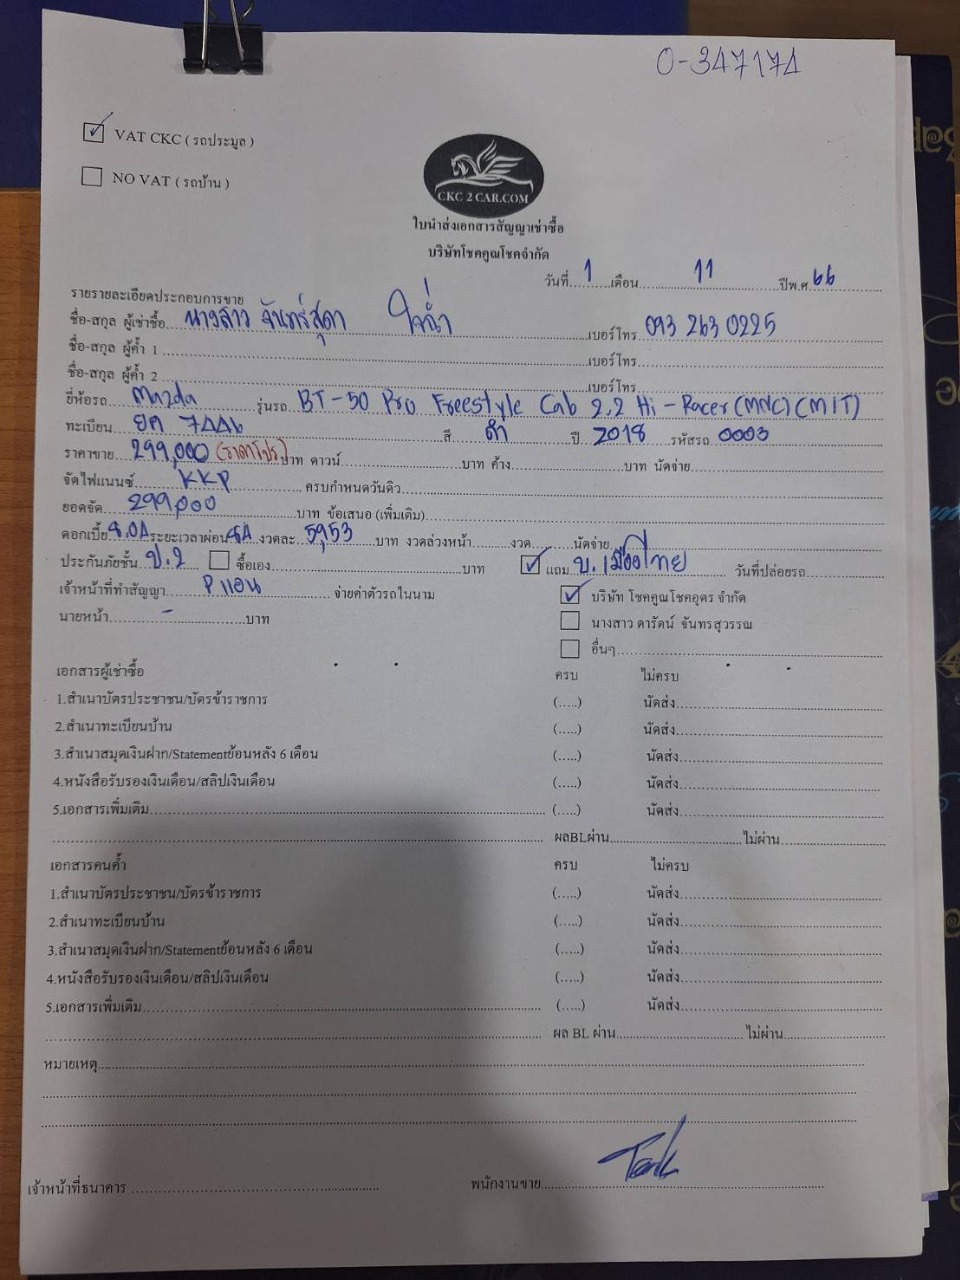 0-347174
VAT CKC ( รถประมูล )
NO VAT ( รถบ้าน )
CKC 2 CAR.COM
ใบนำส่งเอกสารสัญญาเช่าซื้อ
บริษัทโชคคูณโชคจำกัด
วันที่ 1 เดือน 11 ปีพ.ศ 66
รายรายละเอียดประกอบการขาย
ชื่อ-สกุล ผู้เช่าซื้อ นางสาว จันทร์สุดา ใจฉ่ำ เบอร์โทร 093 263 0225
ชื่อ-สกุล ผู้ค้ำ 1 เบอร์โทร
ชื่อ-สกุล ผู้ค้ำ 2 เบอร์โทร
ยี่ห้อรถ Mazda รุ่นรถ BT-50 Pro Freestyle Cab 2.2 Hi-Racer (MNC) (M/T)
ทะเบียน ยค 7446 สี ดำ ปี 2018 รหัสรถ 0003
ราคาขาย 299,000 (ราคาโปร) บาท ดาวน์ บาท ค้าง บาท นัดจ่าย
จัดไฟแนนซ์ KKP ครบกำหนดวันดิว
ยอดจัด 299,000 บาท ข้อเสนอ (เพิ่มเติม)
ดอกเบี้ย 8.04 ระยะเวลาผ่อน 84 งวดละ 5,953 บาท งวดล่วงหน้า งวด นัดจ่าย
ประกันภัยชั้น ป.2 ซื้อเอง บาท แถม บ.เมืองไทย วันที่ปล่อยรถ
เจ้าหน้าที่ทำสัญญา P แอน จ่ายค่าตัวรถในนาม บริษัท โชคคูณโชคอุดร จำกัด
นายหน้า - บาท นางสาว ดารัตน์ จันทรสุวรรณ
อื่นๆ
เอกสารผู้เช่าซื้อ ครบ ไม่ครบ
1.สำเนาบัตรประชาชน/บัตรข้าราชการ (.....) นัดส่ง
2.สำเนาทะเบียนบ้าน (.....) นัดส่ง
3.สำเนาสมุดเงินฝาก/Statementย้อนหลัง 6 เดือน (.....) นัดส่ง
4.หนังสือรับรองเงินเดือน/สลิปเงินเดือน (.....) นัดส่ง
5.เอกสารเพิ่มเติม (.....) นัดส่ง
ผลBLผ่าน ไม่ผ่าน
เอกสารคนค้ำ ครบ ไม่ครบ
1.สำเนาบัตรประชาชน/บัตรข้าราชการ (.....) นัดส่ง
2.สำเนาทะเบียนบ้าน (.....) นัดส่ง
3.สำเนาสมุดเงินฝาก/Statementย้อนหลัง 6 เดือน (.....) นัดส่ง
4.หนังสือรับรองเงินเดือน/สลิปเงินเดือน (.....) นัดส่ง
5.เอกสารเพิ่มเติม (.....) นัดส่ง
ผล BL ผ่าน ไม่ผ่าน
หมายเหตุ
เจ้าหน้าที่ธนาคาร พนักงานขาย